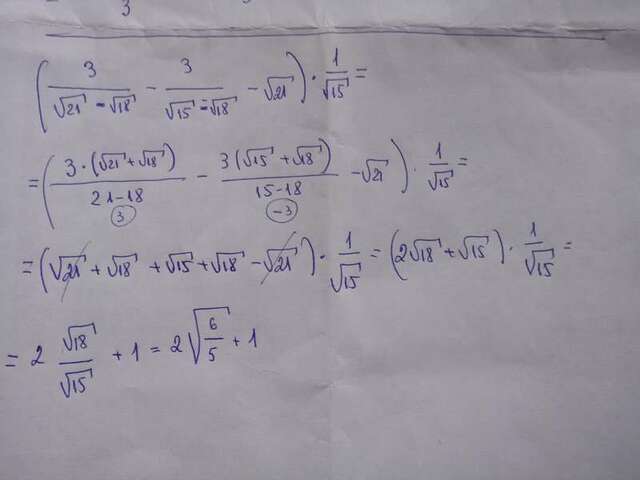 3
( 3/(√21 - √18) - 3/(√15 - √18) - √21 ) · 1/√15 =
= ( 3·(√21 + √18)/(21-18) (3) - 3(√15 + √18)/(15-18) (-3) - √21 ) · 1/√15 =
= (√21 + √18 + √15 + √18 - √21) · 1/√15 = (2√18 + √15) · 1/√15 =
= 2 √18/√15 + 1 = 2√(6/5) + 1